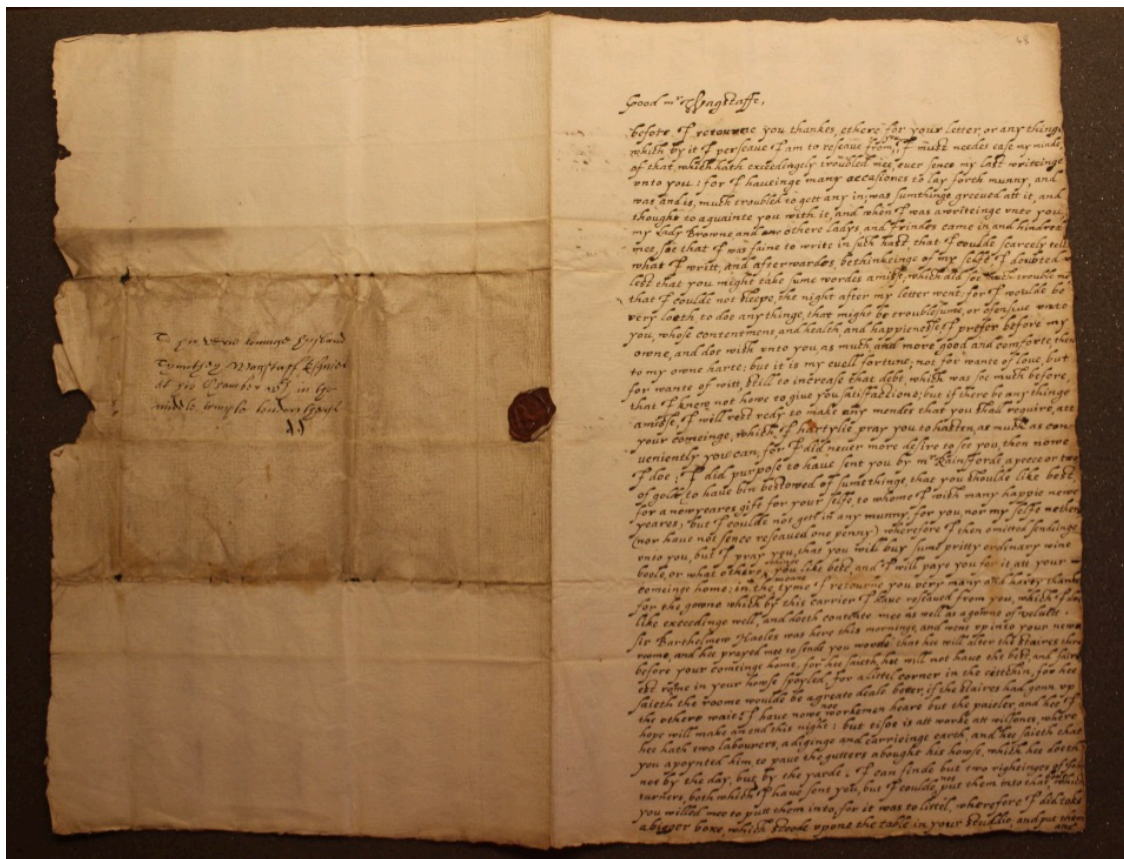 To his verie
at his Chamber in the
middle temple
68
Good mr Wagstaffe,
before I retourne you thankes, ethere for your letter, or any thinge
which by it I perseave I am to reseave from you, I must needes ease my minde,
of that, which hath exceedingely troubled mee, ever sence my last writeinge
vnto you: for I haveinge many occasiones to lay forth munny, and
was and is, much troubled to gett any in; was sumthinge greeved att it, and
thought to aquainte you with it, and when I was a writeinge vnto you,
my Lady Browne and other ladys, and frindes came in and hindred
mee, soe that I was faine to write in such hast, that I coulde scarcely tell
what I writt, and afterwardes, bethinkeinge of my selfe I doubted
lest that you might take sume wordes amisse, which did soe much trouble me
that I coulde not sleepe, the night after my letter went; for I woulde be
very loeth, to doe any thinge, that might be troublesume, or ofensive vnto
you, whose contentment, and health, and happienesse, I prefer before my
owne, and doe wish vnto you as much, and more good and comforte, then
to my owne harte; but it is my evell fortune; not for wante of love, but
for wante of witt, still to increase that debt, which was soe much before,
that I knew not howe to give you satisfactione; but if there be any thinge
amisse, I will rest redy to make any mendes that you shall require, att
your comeinge, which, I hartylie pray you to hasten, as much as con
veniently you can, for I did never more desire to see you, then nowe
I doe; I did purpose to have sent you by mr Rainsforde a peece or two
of golde, to have bin bestowed of sumethinge, that you shoulde like best,
for a newyeares gift for your selfe, to whome I wish many happie newe
yeares; but I coulde not gett in any munny, for you, nor my selfe nethere
(nor have not sence reseaved one penny) wherefore I then omitted sendinge
vnto you, but I pray you, that you will buy sume pritty ordinary wine
boule, or what othere thinge you like best, and I will paye you for it att your
comeinge home; in the meane tyme I retourne you very many and harty thankes
for the gowne which by this carrier I have reseaved from you, which I doe
like exceedinge well, and doeth contente mee as well as a gowne of velvett.
Sir Barthelmew Haeles was here this morninge, and went vp into your newe
roome, and hee prayed mee to sende you worde that hee will alter the staires there
before your comeinge home, for hee saieth, hee will not have the best, and faire
est rome in your howse spoyled, for a littel corner in the citchin, for hee
saieth the roome woulde be a greate deale beter, if the staires had gonn vp
the othere waie; I have nowe noe workemen heare but the pailer, and hee I
hope will make an end this night: but is att worke att wilsones, where
hee hath two labourers, a diginge and carrieinge earth, and hee saieth that
you apoynted him, to pave the gutters abought his howse, which hee doeth
not by the day, but by the yarde. I can finde but two righteinges of John
turners, both which I have sent you, but I coulde not put them into that box which
you willed mee to putt them into, for it was to littel, wherefore I did take
a bigger boxe, which stoode vpone the table in your studdie, and put them
and